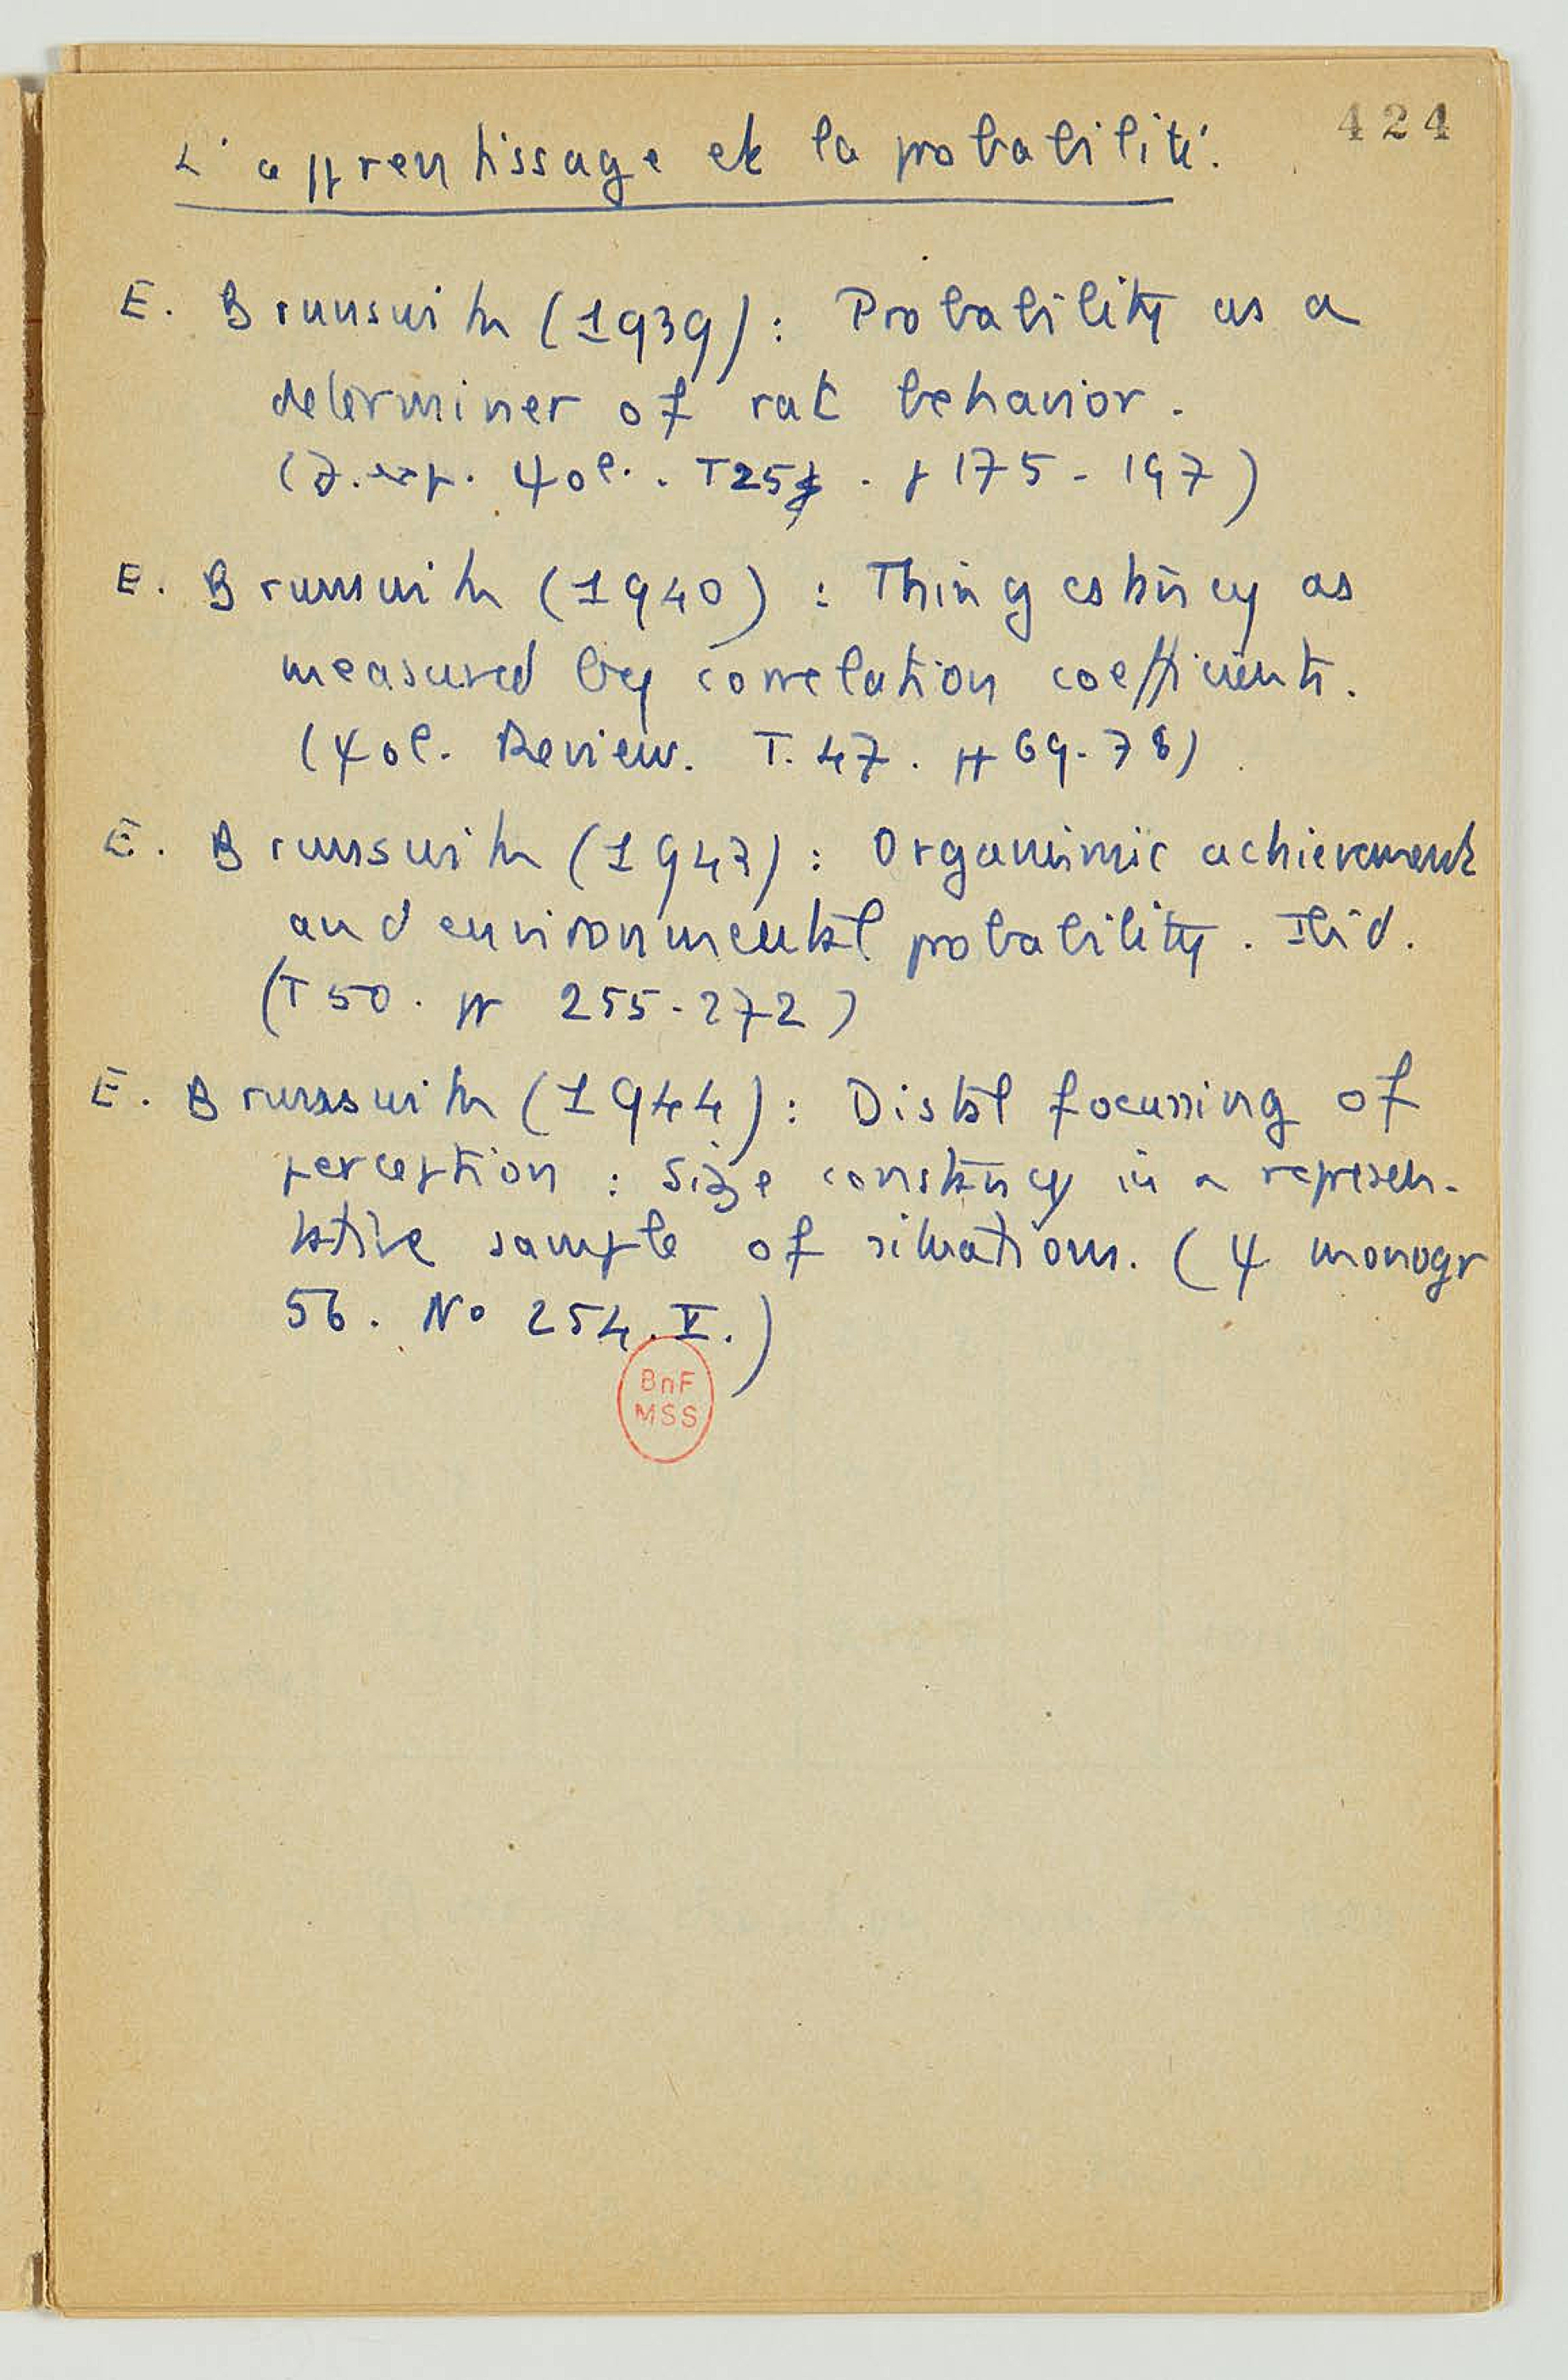 424
L'apprentissage et la probabilité.
E. Brunswik (1939): Probability as a
determiner of rat behavior.
(J. exp. ψol. . T25 . p 175-197)
E. Brunswik (1940) : Thing cstancy as
measured by correlation coefficients.
(ψol. Review. T. 47. pp 69-78)
E. Brunswik (1943): Organismic achievement
and environmental probability. Ibid.
(T 50. pp 255-272)
E. Brunswik (1944): Distal focussing of
perception : Size constancy in a represen-
tative sample of situations. (ψ monogr
56. No 254. V.)
BnF
MSS